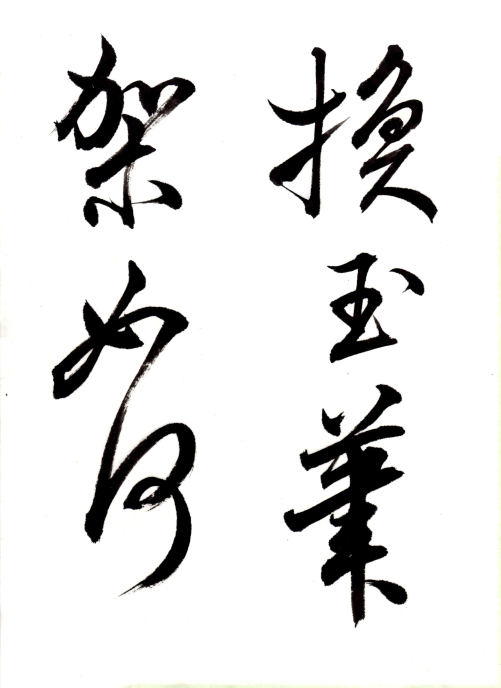 換玉筆
架如何